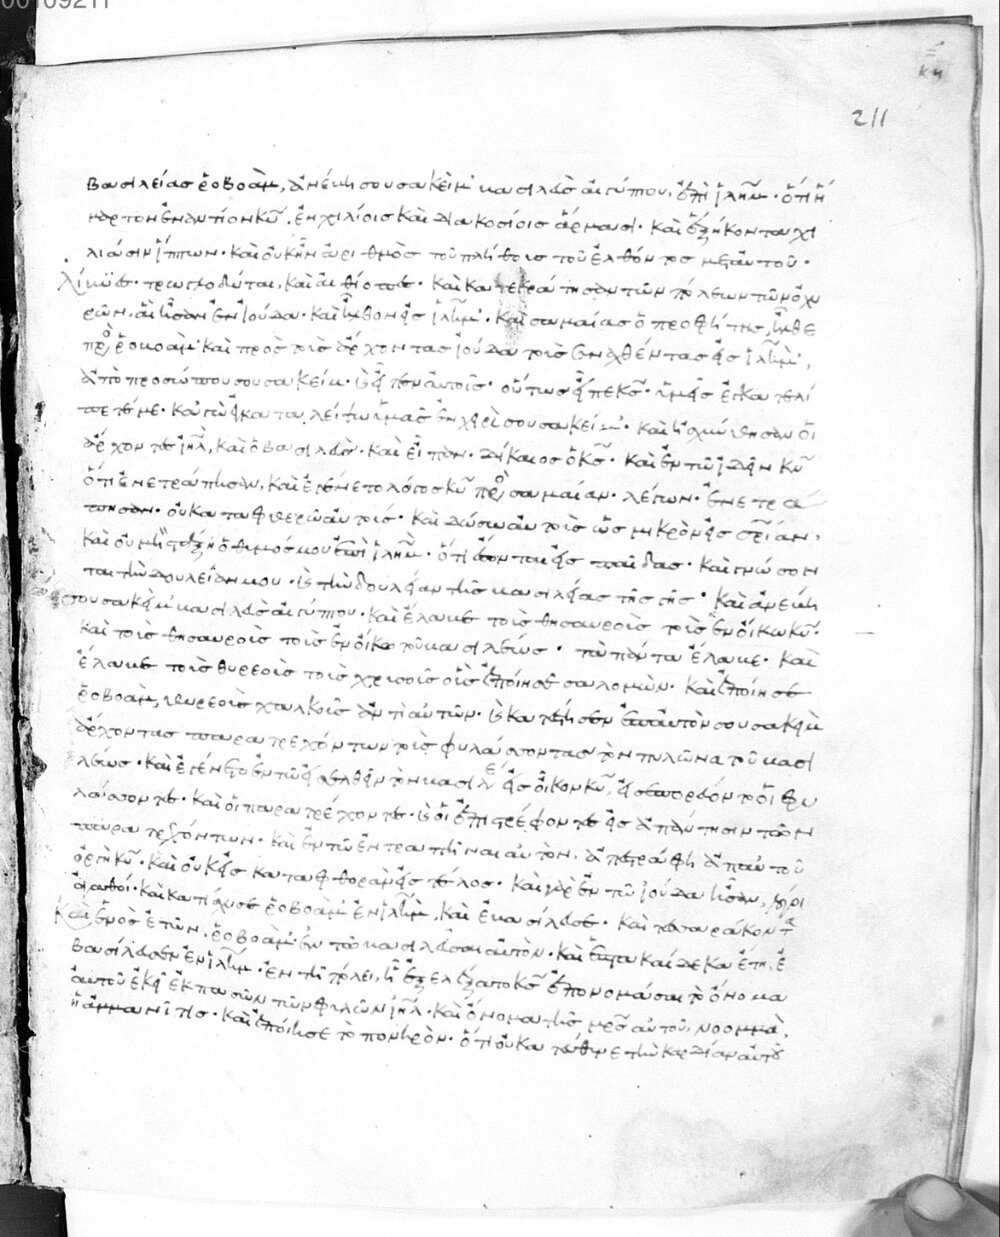 00109211
κη
211
βασιλείας ῥοβοὰμ, ἀνέβη σουσακεὶμ βασιλεὺς αἰγύπτου, ἐπὶ ἰλῆμ· ὅτι ἥ
μαρτον ἐναντίον κυ̅. ἐν χιλίοις καὶ διακοσίοις ἅρμασι· καὶ ἑξήκοντα χι
λιάσιν ἵππων· καὶ οὐκ ἦν ἀριθμὸς τοῦ πλήθους τοῦ ἐλθόντος μετ' αὐτοῦ·
λίβυες· τρωγλοδύται, καὶ αἰθίοπες· καὶ κατεκράτησαν τῶν πόλεων τῶν ὀχυ
ρῶν, αἳ ἦσαν ἐν ἰούδα· καὶ ἦλθον εἰς ἰλῆμ· καὶ σαμαίας ὁ προφήτης, ἦλθε
πρὸς ῥοβοὰμ· καὶ πρὸς τοὺς ἄρχοντας ἰούδα τοὺς συναχθέντας εἰς ἰλὴμ,
ἀπὸ προσώπου σουσακείμ· καὶ εἶπεν αὐτοῖς· οὕτως εἶπε κς̅· ὑμεῖς ἐγκατελί
πετέ με· κἀγὼ ἐγκαταλείψω ὑμᾶς ἐν χειρὶ σουσακείμ· καὶ ᾐσχύνθησαν οἱ
ἄρχοντες ιηλ̅, καὶ ὁ βασιλεὺς· καὶ εἶπον· δίκαιος ὁ κς̅· καὶ ἐν τῷ ἰδεῖν κν̅
ὅτι ἐνετράπησαν, καὶ ἐγένετο λόγος κυ̅ πρὸς σαμαίαν· λέγων· ἐνετρά
πησαν· οὐ καταφθερῶ αὐτούς· καὶ δώσω αὐτοὺς ὡς μικρὸν εἰς σρίαν,
καὶ οὐ μὴ στάξῃ ὁ θυμός μου ἐπὶ ἰλῆμ· ὅτι ἔσονται εἰς παῖδας· καὶ γνώσον
ται τὴν δουλείαν μου· καὶ τὴν δουλείαν τῆς βασιλείας τῆς γῆς· καὶ ἀνέβη
σουσακεὶμ βασιλεὺς αἰγύπτου· καὶ ἔλαβε τοὺς θησαυροὺς τοὺς ἐν οἴκω κυ̅·
καὶ τοὺς θησαυροὺς τοὺς ἐν οἴκω τοῦ βασιλέως· τὰ πάντα ἔλαβε· καὶ
ἔλαβε τοὺς θυρεοὺς τοὺς χρυσοῦς οὓς ἐποίησε σαλομών· καὶ ἐποίησε
ῥοβοὰμ, θυρεοὺς χαλκοῦς ἀντ' αὐτῶν· καὶ κατέστησεν ἐπ' αὐτὸν σουσακεὶμ
ἄρχοντας παρατρεχόντων τοὺς φυλάσσοντας τὸν πυλῶνα τοῦ βασι
λέως· καὶ ἐγένετο ἐν τῷ εἰσελθεῖν τὸν βασιλέα εἰς οἶκον κυ̅, εἰσεπορεύοντο οἱ φυ
λάσσοντες· καὶ οἱ παρατρέχοντες· καὶ οἱ ἐπιστρέφοντες εἰς ἀπάντησιν τῶν
παρατρεχόντων· καὶ ἐν τῷ ἐντραπῆναι αὐτὸν, ἀπεστράφη ἀπ' αὐτοῦ
ὀργὴ κυ̅· καὶ οὐκ εἰς καταφθορὰν εἰς τέλος· καὶ γὰρ ἐν τῷ ἰούδα ἦσαν, λόγοι
ἀγαθοί· καὶ κατίσχυσε ῥοβοὰμ ἐν ἰλὴμ, καὶ ἐβασίλευσε· καὶ τεσσαράκοντα
καὶ ἑνὸς ἐτῶν, ῥοβοὰμ ἐν τῷ βασιλεῦσαι αὐτόν· καὶ ἑπτὰ καὶ δέκα ἔτη, ἐ
βασίλευσεν ἐν ἰλὴμ· ἐν τῇ πόλει, ᾗ ἐξελέξατο κς̅ ἐπονομάσαι τὸ ὄνομα
αὐτοῦ ἐκεῖ ἐκ πασῶν τῶν φυλῶν ιηλ̅· καὶ ὄνομα τῆς μρς̅ αὐτοῦ, νοομμὰ,
ἡ ἀμμανῖτις· καὶ ἐποίησε τὸ πονηρὸν· ὅτι οὐ κατεύθυνε τὴν καρδίαν αὐτοῦ